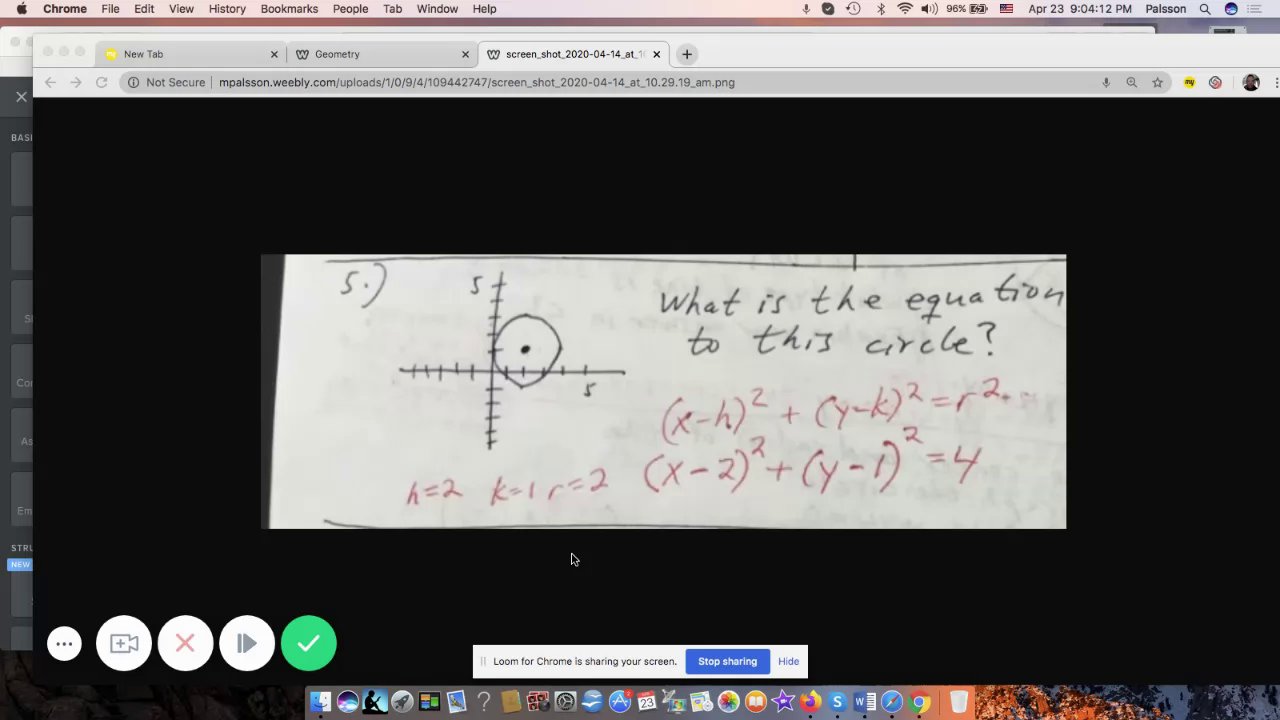 Chrome File Edit View History Bookmarks People Tab Window Help 96% Apr 23 9:04:12 PM Palsson
New Tab Geometry screen_shot_2020-04-14_at_1
Not Secure mpalsson.weebly.com/uploads/1/0/9/4/109442747/screen_shot_2020-04-14_at_10.29.19_am.png
my
BAS
5.) 5 What is the equation
to this circle?
5
(x-h)² + (y-k)² = r²
(x-2)² + (y-1)² = 4
h=2 k=1 r=2
Co
As
Em
STRU
NEW
Loom for Chrome is sharing your screen. Stop sharing Hide
23